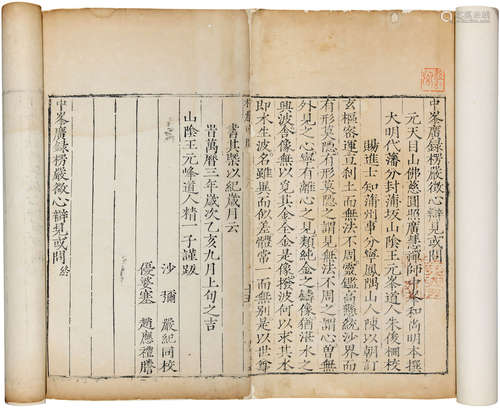 中峯廣錄楞嚴徵心辯見或問
元天目山佛慈圓照廣慧禪師中峯和尚明本撰
大明代藩分封蒲坂山陰王元峰道人朱俊柵校
賜進士知蒲州事分寧鳳隅山人陳以朝訂
玄樞密運亘刹土而無法不周靈鑑高懸統沙界而
有形莫隱有形莫隱之謂見無法不周之謂心曾無
外見之心寧有離心之見類純金之鑄像猶湛水之
興波舍像無以覓其金全金是像撥波何以求其水
即水生波名雖異而似差體常一而無别是以世尊
書其槩以紀歲月云
旹萬曆三年歲次乙亥九月上旬之吉
山陰王元峰道人精一子謹跋
沙彌 嚴紀同校
優婆塞 趙應禮謄
中峯廣錄楞嚴徵心辯見或問 終